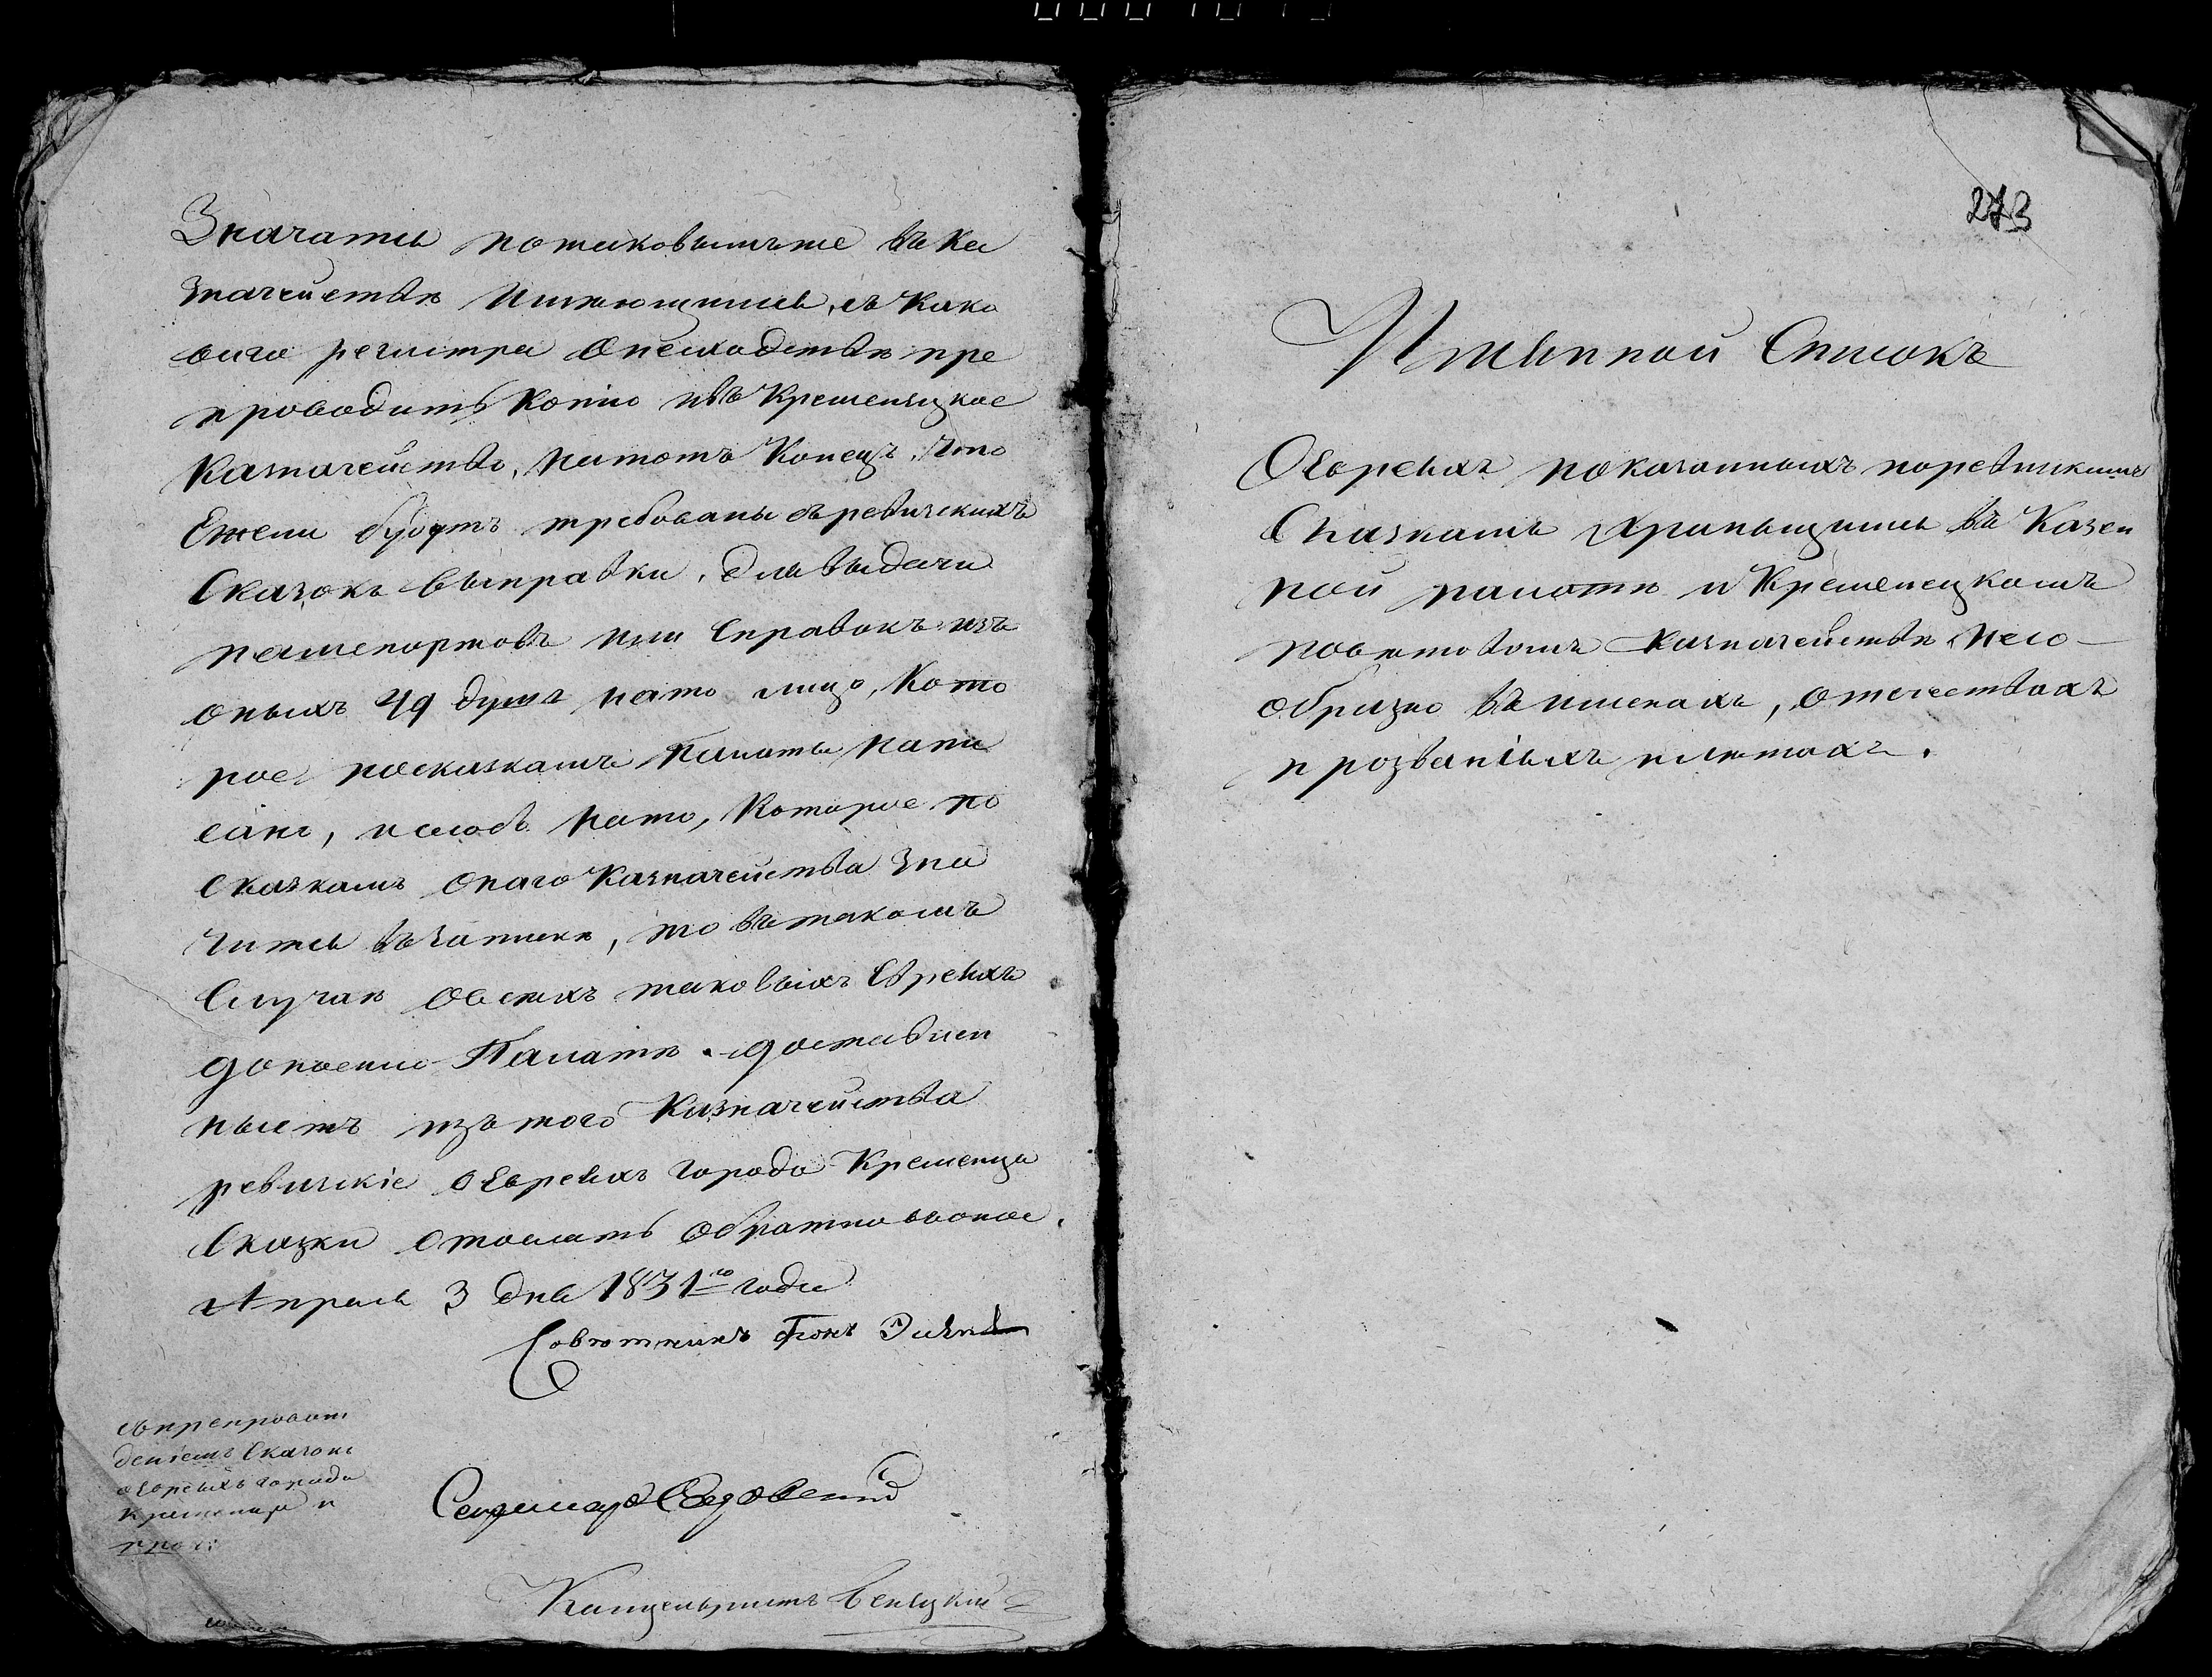 Значатся потаковымъже въ Ка
значействѣ имѣющимся, съ како
ваго регистра Онесходствѣ пре
проводить Копию въ Кременецкое
Казначейство, на тотъ Конецъ, что
Ежели будутъ требованы съревизскихъ
Сказокъ выправки, для выдачи
пашепортовъ или Справокъ изъ
оныхъ 49 душъ на то лицо, Кото
рое посказкамъ Палаты напи
сано, и на то, Которое по
Сказкамъ онаго Казначейства Зна
чится, то въ такомъ
Случаѣ Овсехъ таковыхъ Евреяхъ
донесено Палатѣ. доставлен
ныежъ изъ того Казначейства
ревизскіе оЕвреяхъ города Кременца
Сказки отослать обратно воное.
Апреля 3 дня 1831го года
Совѣтникъ Фонъ
съпрепровож
деніемъ Сказокъ
оЕвреяхъ города
Кременца и
Канцеляристъ
273
Имянной Списокъ
ОЕвреяхъ показанныхъ поревизкимъ
Сказкамъ Хранящимся въ Казен
ной палатѣ и Кременецкомъ
повѣтовомъ Казначействѣ несо-
образно въ именахъ, отечествахъ
прозваніяхъ илѣтахъ.